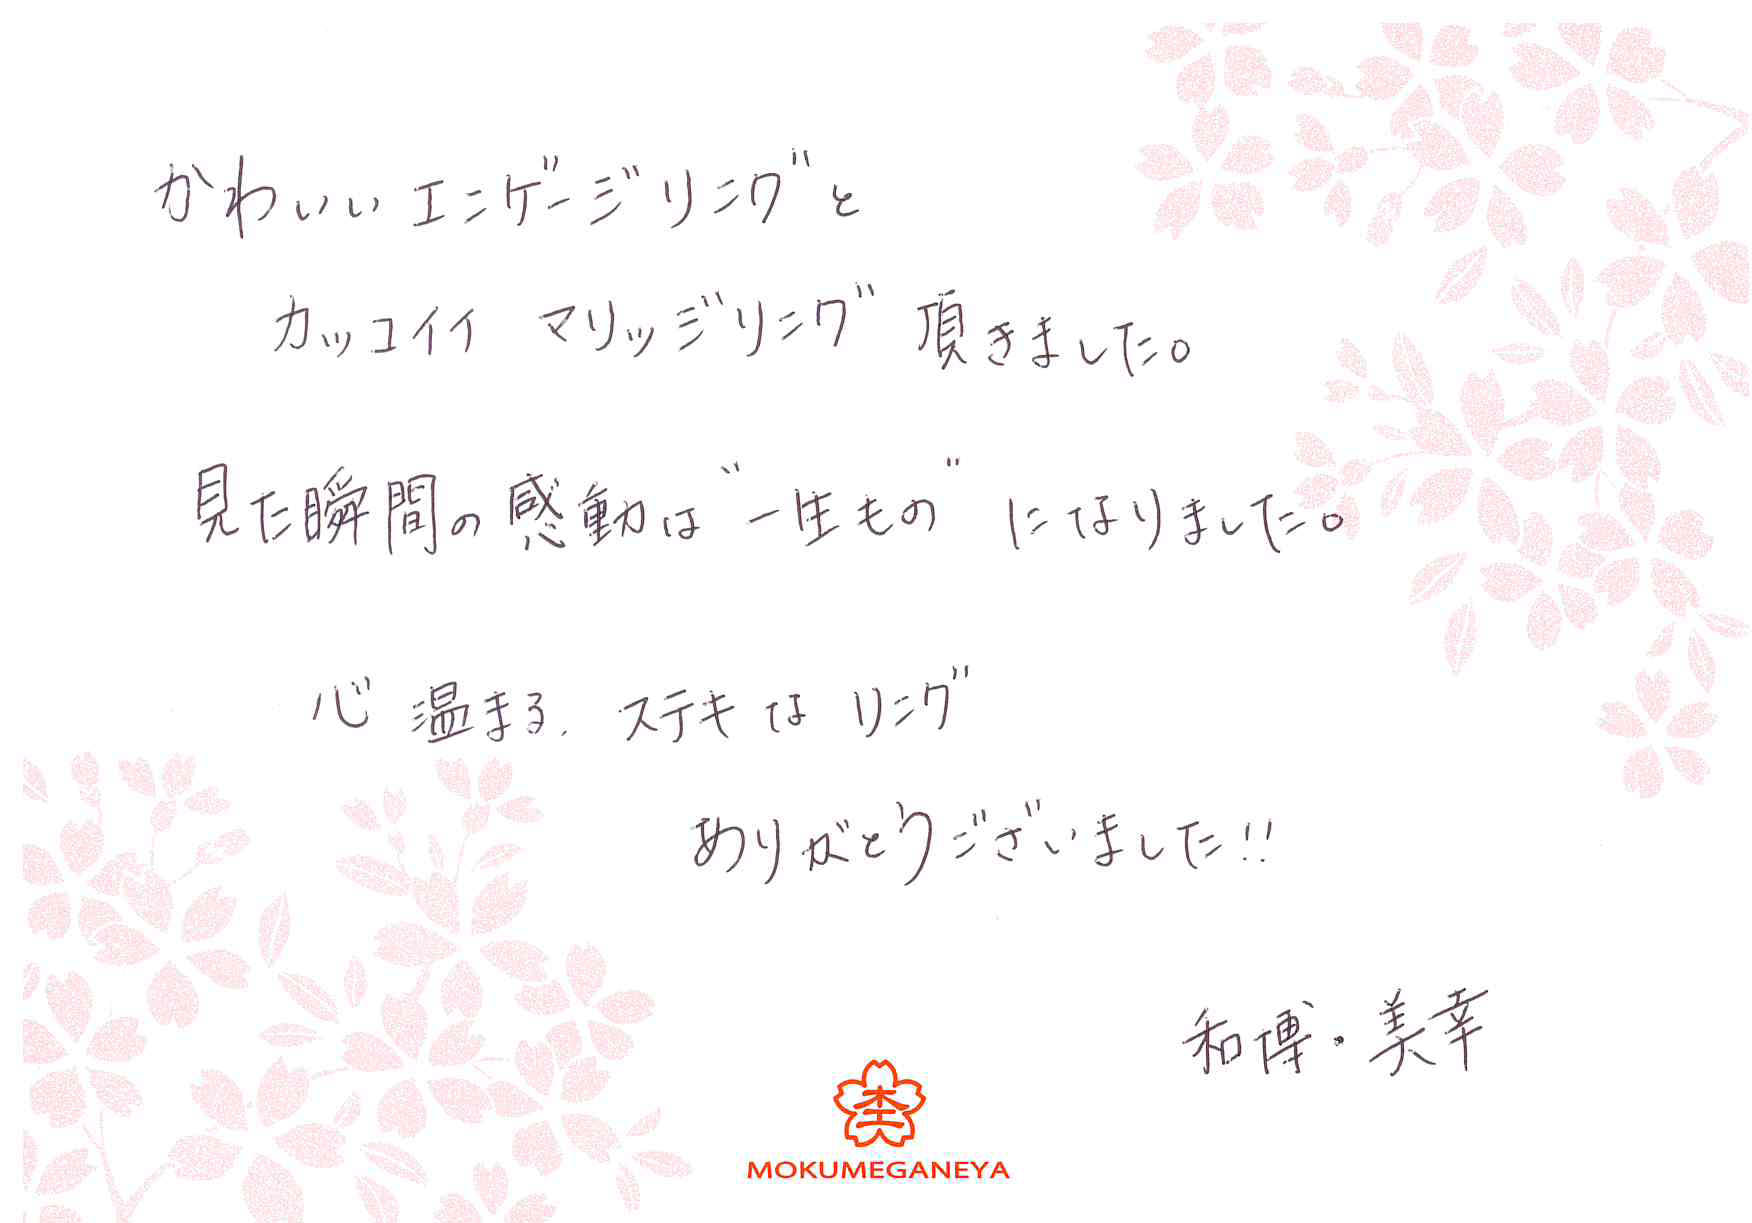 かわいいエンゲージリングと
カッコイイ マリッジリング 頂きました。
見た瞬間の感動は"一生もの"になりました。
心 温まる、ステキな リング
ありがとうございました!!
和博・美幸
MOKUMEGANEYA